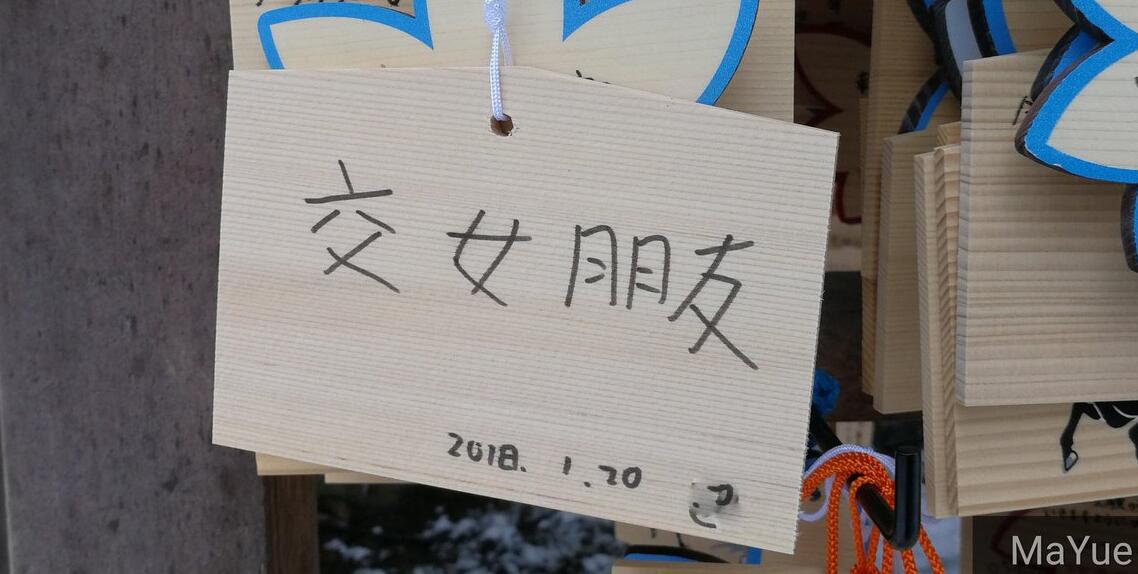 交女朋友
2018.1.20
MaYue